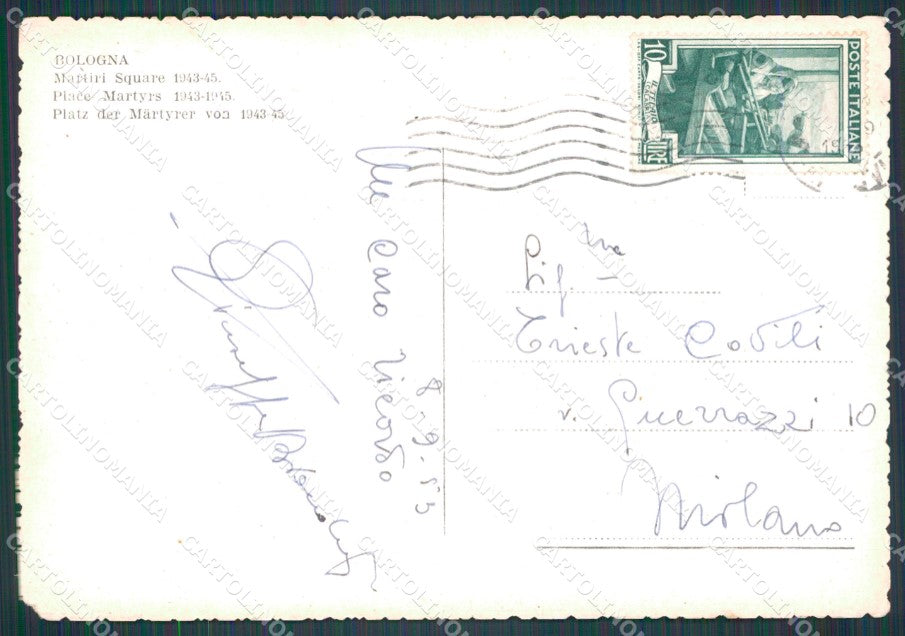 BOLOGNA
Martiri Square 1943-45.
Place Martyrs 1943-1945.
Platz der Märtyrer von 1943-45
10
LIRE
POSTE ITALIANE
19
Un caro ricordo
8.9.53
Giuseppe
Sig.na
Trieste Covili
v. Guerrazzi 10
Milano
CARTOLINOMANIA